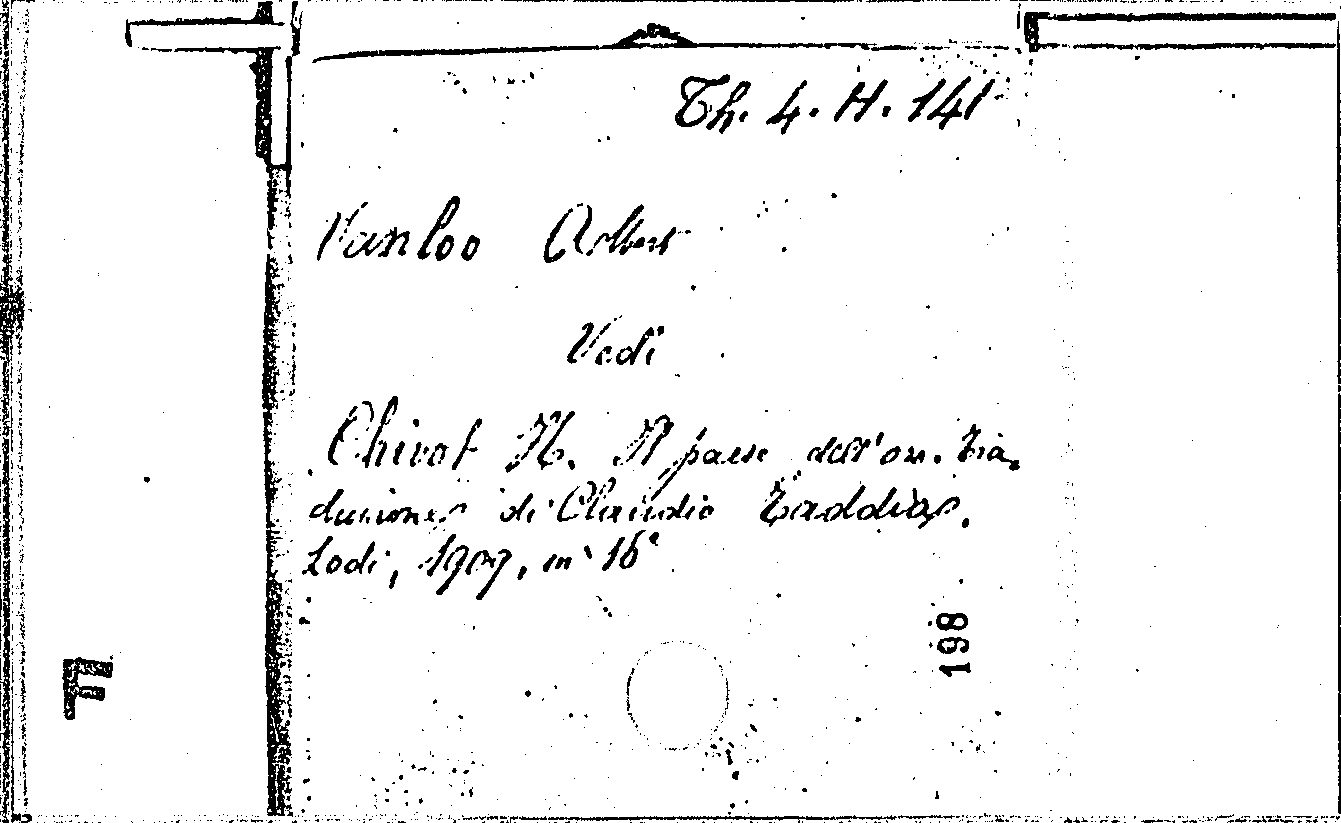 Th. 4. H. 141
Vanloo Albert
Vedi
Chivot H. Il paese dell'oro. Tra-
duzione di Claudio Taddia.
Lodi, 1909, in 16°
198
F